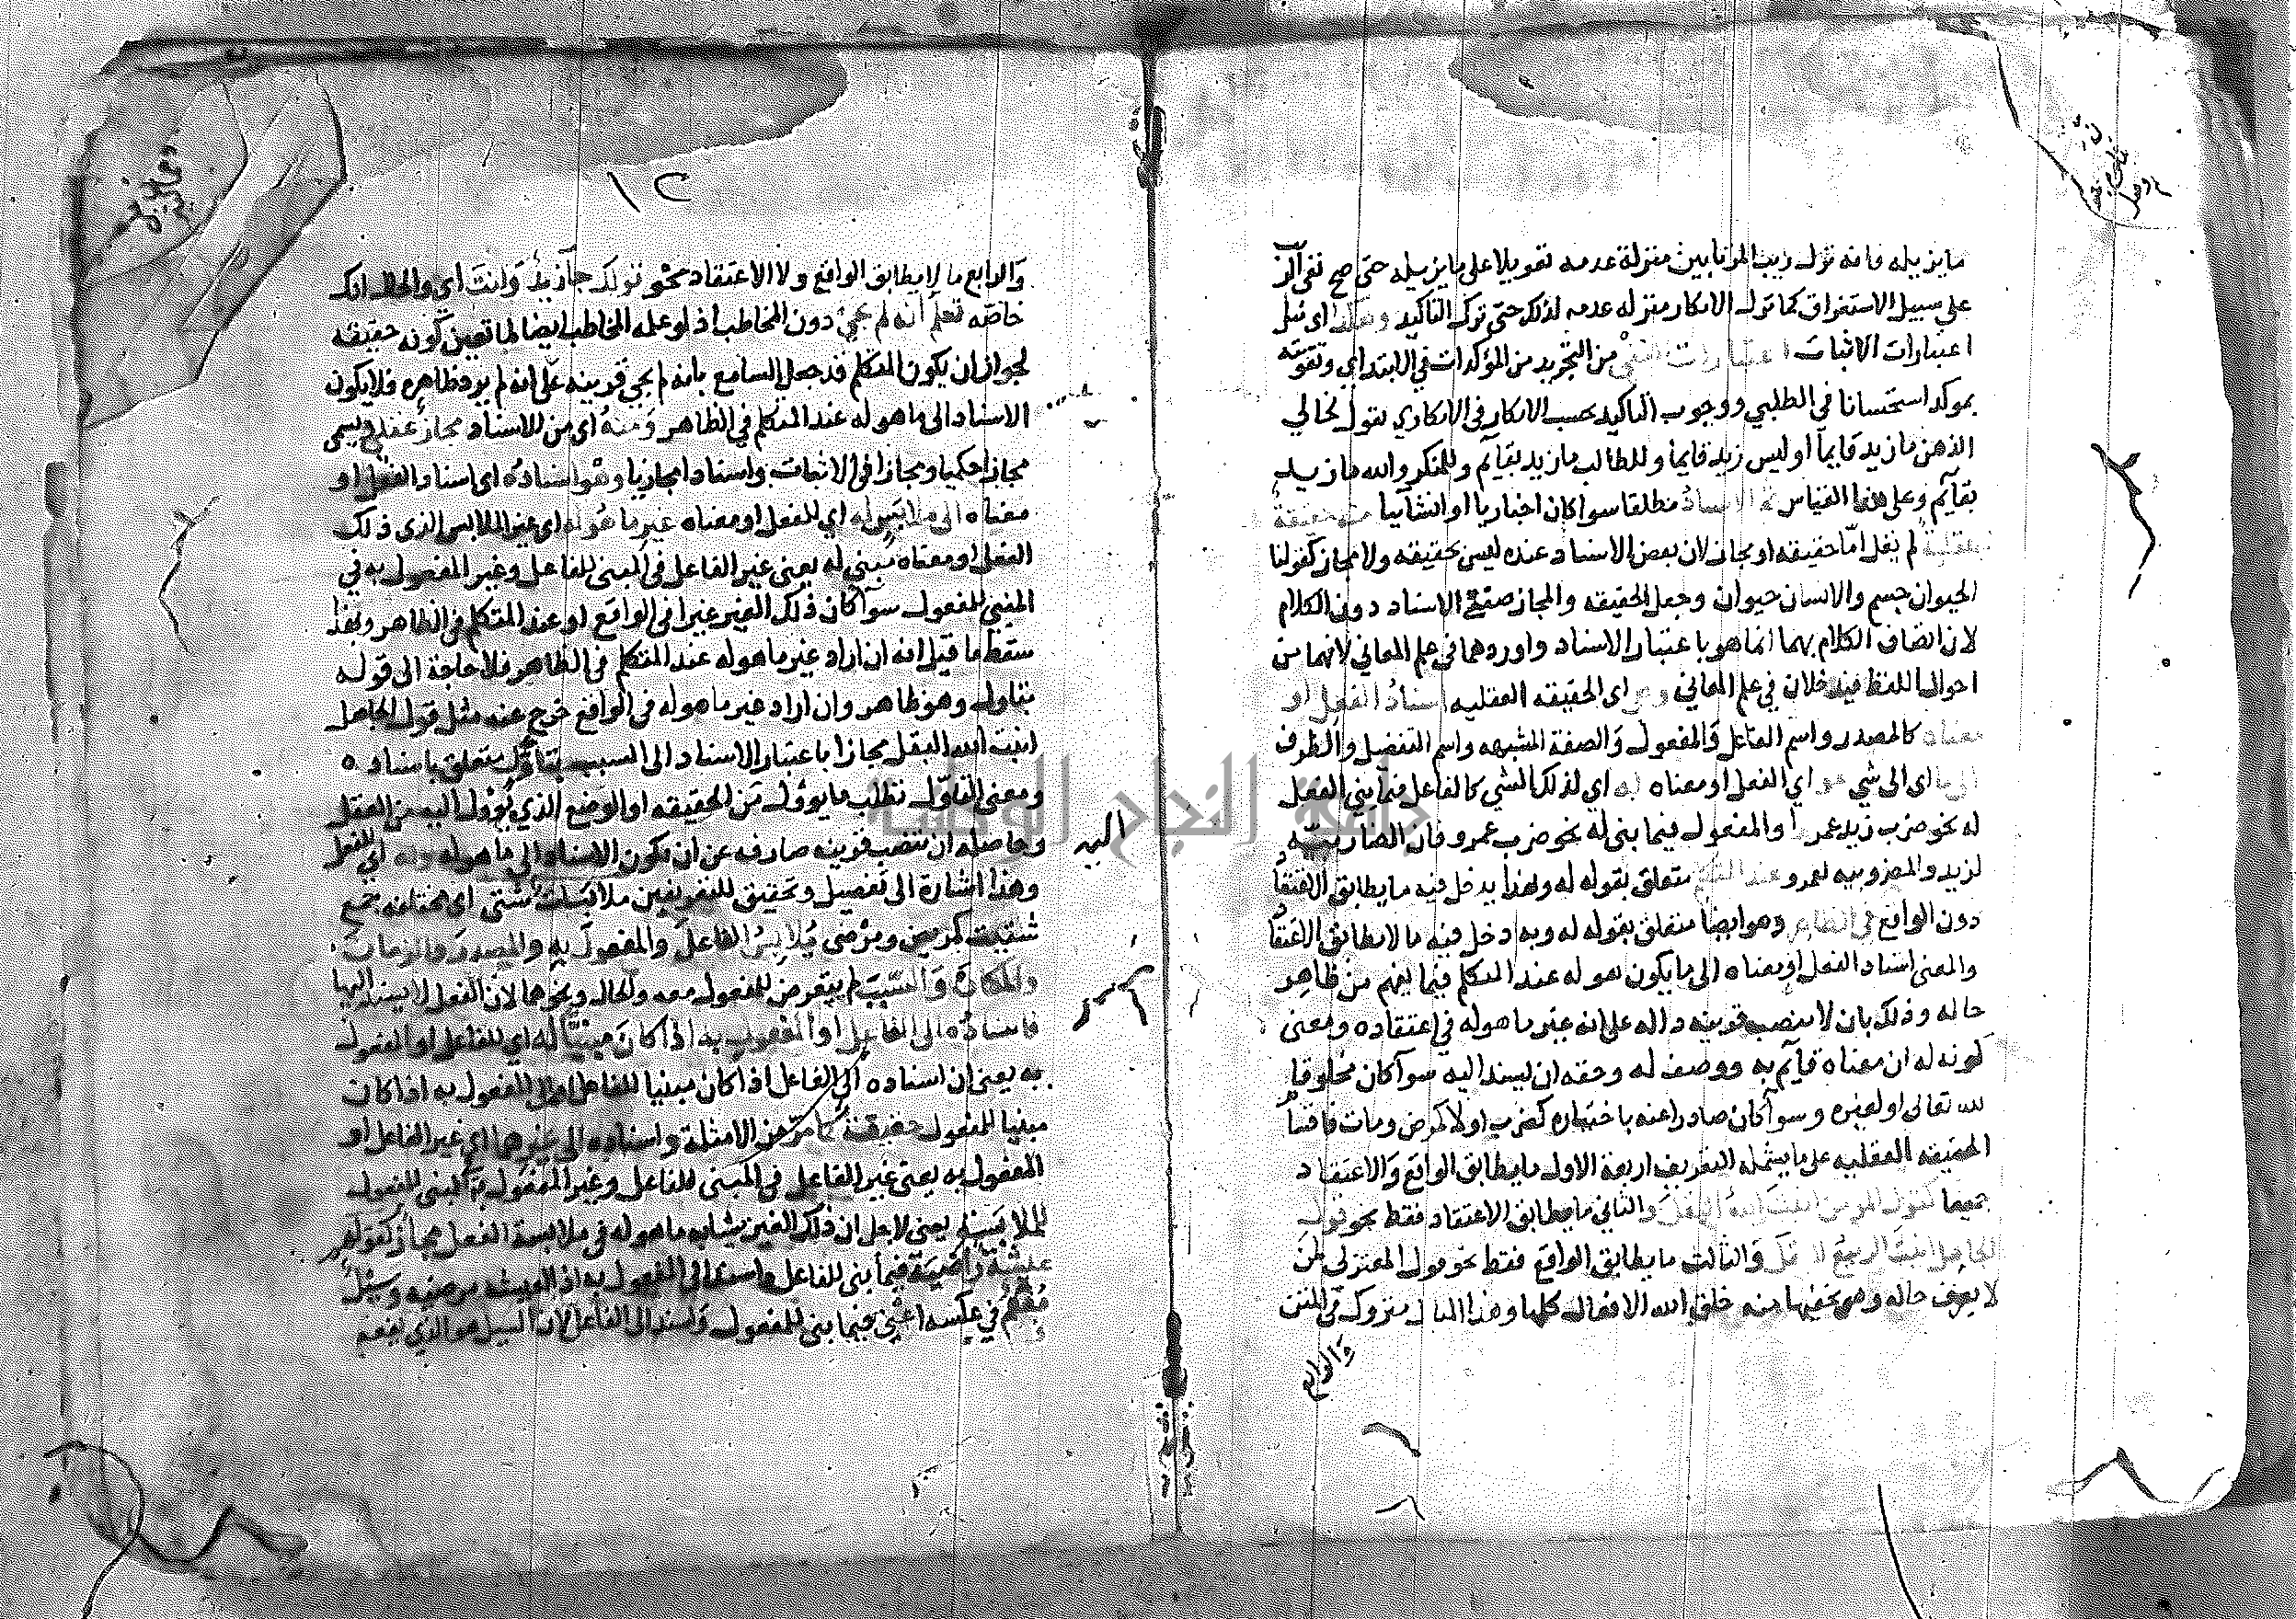 ما يزيله فانه نزل ريب المرتابين منزلة عدمه تعويلا على ما يزيله حتى صح نفى الريب
على سبيل الاستغراق كما نزل الانكار منزله عدمه لذلك حتى ترك التاكيد وهكذا اى مثل
اعتبارات الاثبات اعتبارات النفى من التجريد من المؤكدات في الابتداي وتقويته
بموكد استحسانا في الطلبي ووجوب التاكيد بحسب الانكار فى الانكاري تقول لخالي
الذهن ما زيد قايما او ليس زيد قايما وللطالب ما زيد بقايم وللمنكر والله ما زيد
بقآيم وعلى هذا القياس ثم الاسناد مطلقا سوا كان اخباريا او انشآييا منه حقيقة
عقلية لم يقل امّا حقيقه او مجاز لان بعض الاسناد عنده ليس بحقيقه ولا مجاز كقولنا
الحيوان جسم والانسان حيوان وجعل الحقيقه والمجاز صفتي الاسناد دون الكلام
لان اتصاف الكلام بهما انما هو باعتبار الاسناد واوردهما في علم المعاني لانهما من
احوال اللفظ فيدخلان في علم المعاني وهى اى الحقيقه العقليه اسناد الفعل او
معناه كالمصدر واسم الفاعل والمفعول والصفة المشبهه واسم التفضيل والظرف
الى ما اى الى شي هو اي الفعل او معناه له اي لذلك الشي كالفاعل فيما بني الفعل
له نحو ضرب زيد عمرا والمفعول فيما بنى له نحو ضرب عمرو فان الضاربيّه
لزيد والمضروبيه لعمرو عند المتكلم متعلق بقوله له ولهذا يدخل فيه ما يطابق الاعتقاد
دون الواقع في الظاهر وهو ايضا متعلق بقوله له وبه دخل فيه ما لا يطابق الاعتقاد
والمعنى اسناد الفعل او معناه الى ما يكون هو له عند المتكلم فيما يفهم من ظاهر
حاله وذلك بان لا ينصب قرينه داله على انه غير ما هو له في اعتقاده ومعنى
كونه له ان معناه قآيم به ووصف له وحقه ان يسند اليه سوآ كان مخلوقا
لله تعالى او لغيره وسوآ كان صادرا عنه باختياره كضرب او لا كمرض ومات فاقسام
الحقيقه العقليه على ما يشمله التعريف اربعة الاول ما يطابق الواقع والاعتقاد
جميعا كقول المومن انبت الله البقل والثاني ما يطابق الاعتقاد فقط نحو قول
الجاهل انبت الربيع البقل والثالث ما يطابق الواقع فقط نحو قول المعتزلى لمن
لا يعرف حاله وهو يخفيها منه خلق الله الافعال كلها وهذا المثال متروك في المتن
والرابع
١٢
والرابع ما لا يطابق الواقع ولا الاعتقاد نحو قولك جآ زيد وانت اي والحال انك
خاصّه تعلم انه لم يجئ دون المخاطب اذ لو علمه المخاطب ايضا لما تعين كونه حقيقه
لجواز ان يكون المتكلم قد جعل السامع بانه لم يجي قرينه على انه لم يرد ظاهره فلا يكون
الاسناد الى ما هو له عند المتكلم في الظاهر ومنه اى من الاسناد مجاز عقلي ويسمى
مجازا حكميا ومجازا فى الاثبات واسنادا مجازيا وهو اسناده اى اسناد الفعل او
معناه الى ملابس له اي للفعل او معناه غير ما هو له اى غير الملابس الذى ذلك
الفعل او معناه مبني له يعنى غير الفاعل في المبنى للفاعل وغير المفعول به في
المبني للمفعول سوآ كان ذلك الغير غيرا فى الواقع او عند المتكلم فى الظاهر وبهذا
سقط ما قيل انه ان اراد غير ما هو له عند المتكلم فى الظاهر فلا حاجة الى قوله
بتاول وهو ظاهر وان اراد غير ما هو له فى الواقع خرج عنه مثل قول الجاهل
انبت الله البقل مجازا باعتبار الاسناد الى السبب بتاوّل متعلق باسناده
ومعنى التاوّل تطلب ما يوؤل من الحقيقه او الموضع الذي يؤول اليه من العقل
وحاصله ان تنصب قرينه صارفه عن ان يكون الاسناد الى ما هو له وله اى للفعل
وهذا اشارة الى تفصيل وتحقيق للتعريفين ملابسات شتى اى مختلفه جمع
شتيت كمريض ومرضى يلابس الفاعل والمفعول به والمصدر والزمان
والمكان والسبب لم يتعرض للمفعول معه والحال ونحوها لان الفعل لا يسند اليها
فاسناده الى الفاعل او المفعول به اذا كان مبنيّا له اي للفاعل او المفعول
به يعنى ان اسناده الى الفاعل اذا كان مبنيا للفاعل او الى المفعول به اذا كان
مبنيا للمفعول حقيقة كما مرّ من الامثلة واسناده الى غيرهما اي غير الفاعل او
المفعول به يعنى غير الفاعل في المبنى للفاعل وغير المفعول به في المبنى للمفعول
للملابسة يعنى لاجل ان ذلك الغير يشابه ما هو له فى ملابسة الفعل مجاز كقولهم
عيشة راضية فيما بنى للفاعل واسند الى المفعول به اذ العيشه مرضيه وسيل
مفعم في عكسه اعني فيما بنى للمفعول واسند الى الفاعل لان السيل هو الذي يفعم
جامعة النجاح الوطنية